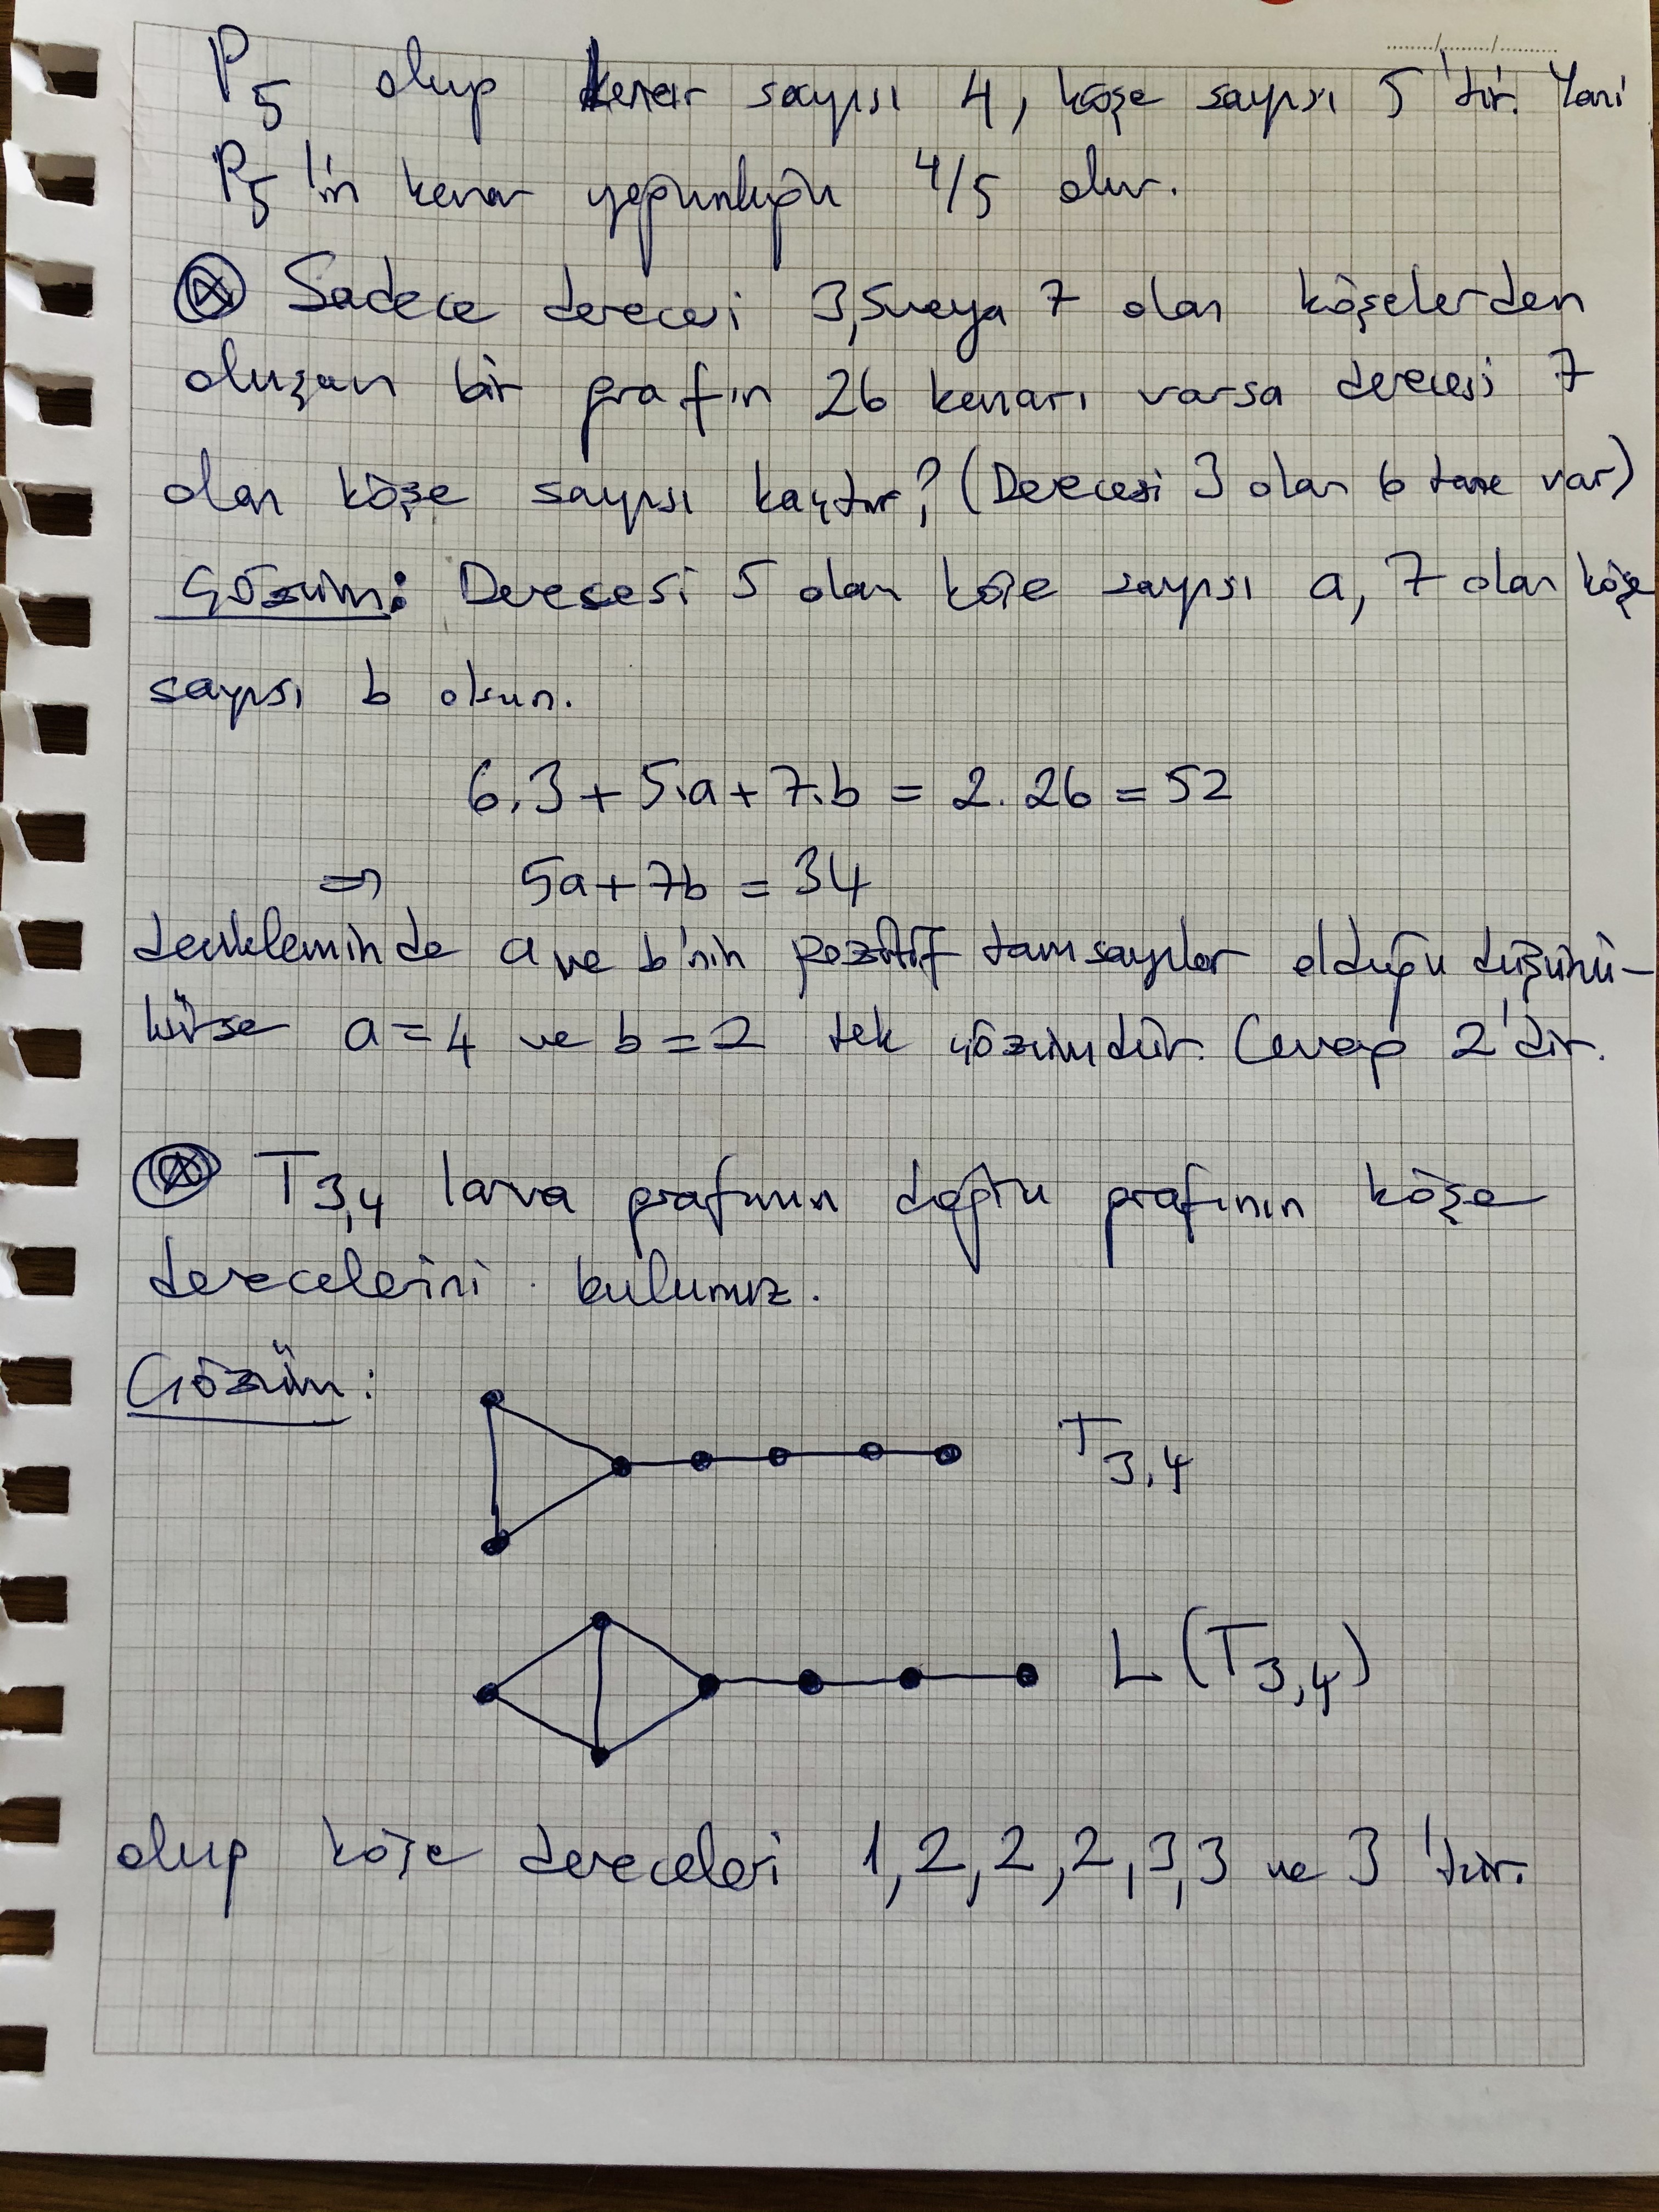 P₅ olup kenar sayısı 4, köşe sayısı 5'tir. Yani
P₅'in kenar yoğunluğu 4/5 olur.
⊗ Sadece derecesi 3,5 veya 7 olan köşelerden
oluşan bir grafın 26 kenarı varsa derecesi 7
olan köşe sayısı kaçtır? (Derecesi 3 olan 6 tane var)
Çözüm: Derecesi 5 olan köşe sayısı a, 7 olan köşe
sayısı b olsun.
6.3 + 5.a + 7.b = 2.26 = 52
⇒ 5a + 7b = 34
denkleminde a ve b'nin pozitif tamsayılar olduğu düşünü-
lürse a = 4 ve b = 2 tek çözümdür. Cevap 2'dir.
⊗ T₃,₄ larva grafının doğru grafının köşe
derecelerini bulunuz.
Çözüm:
T₃,₄
L(T₃,₄)
olup köşe dereceleri 1,2,2,2,3,3 ve 3'tür.